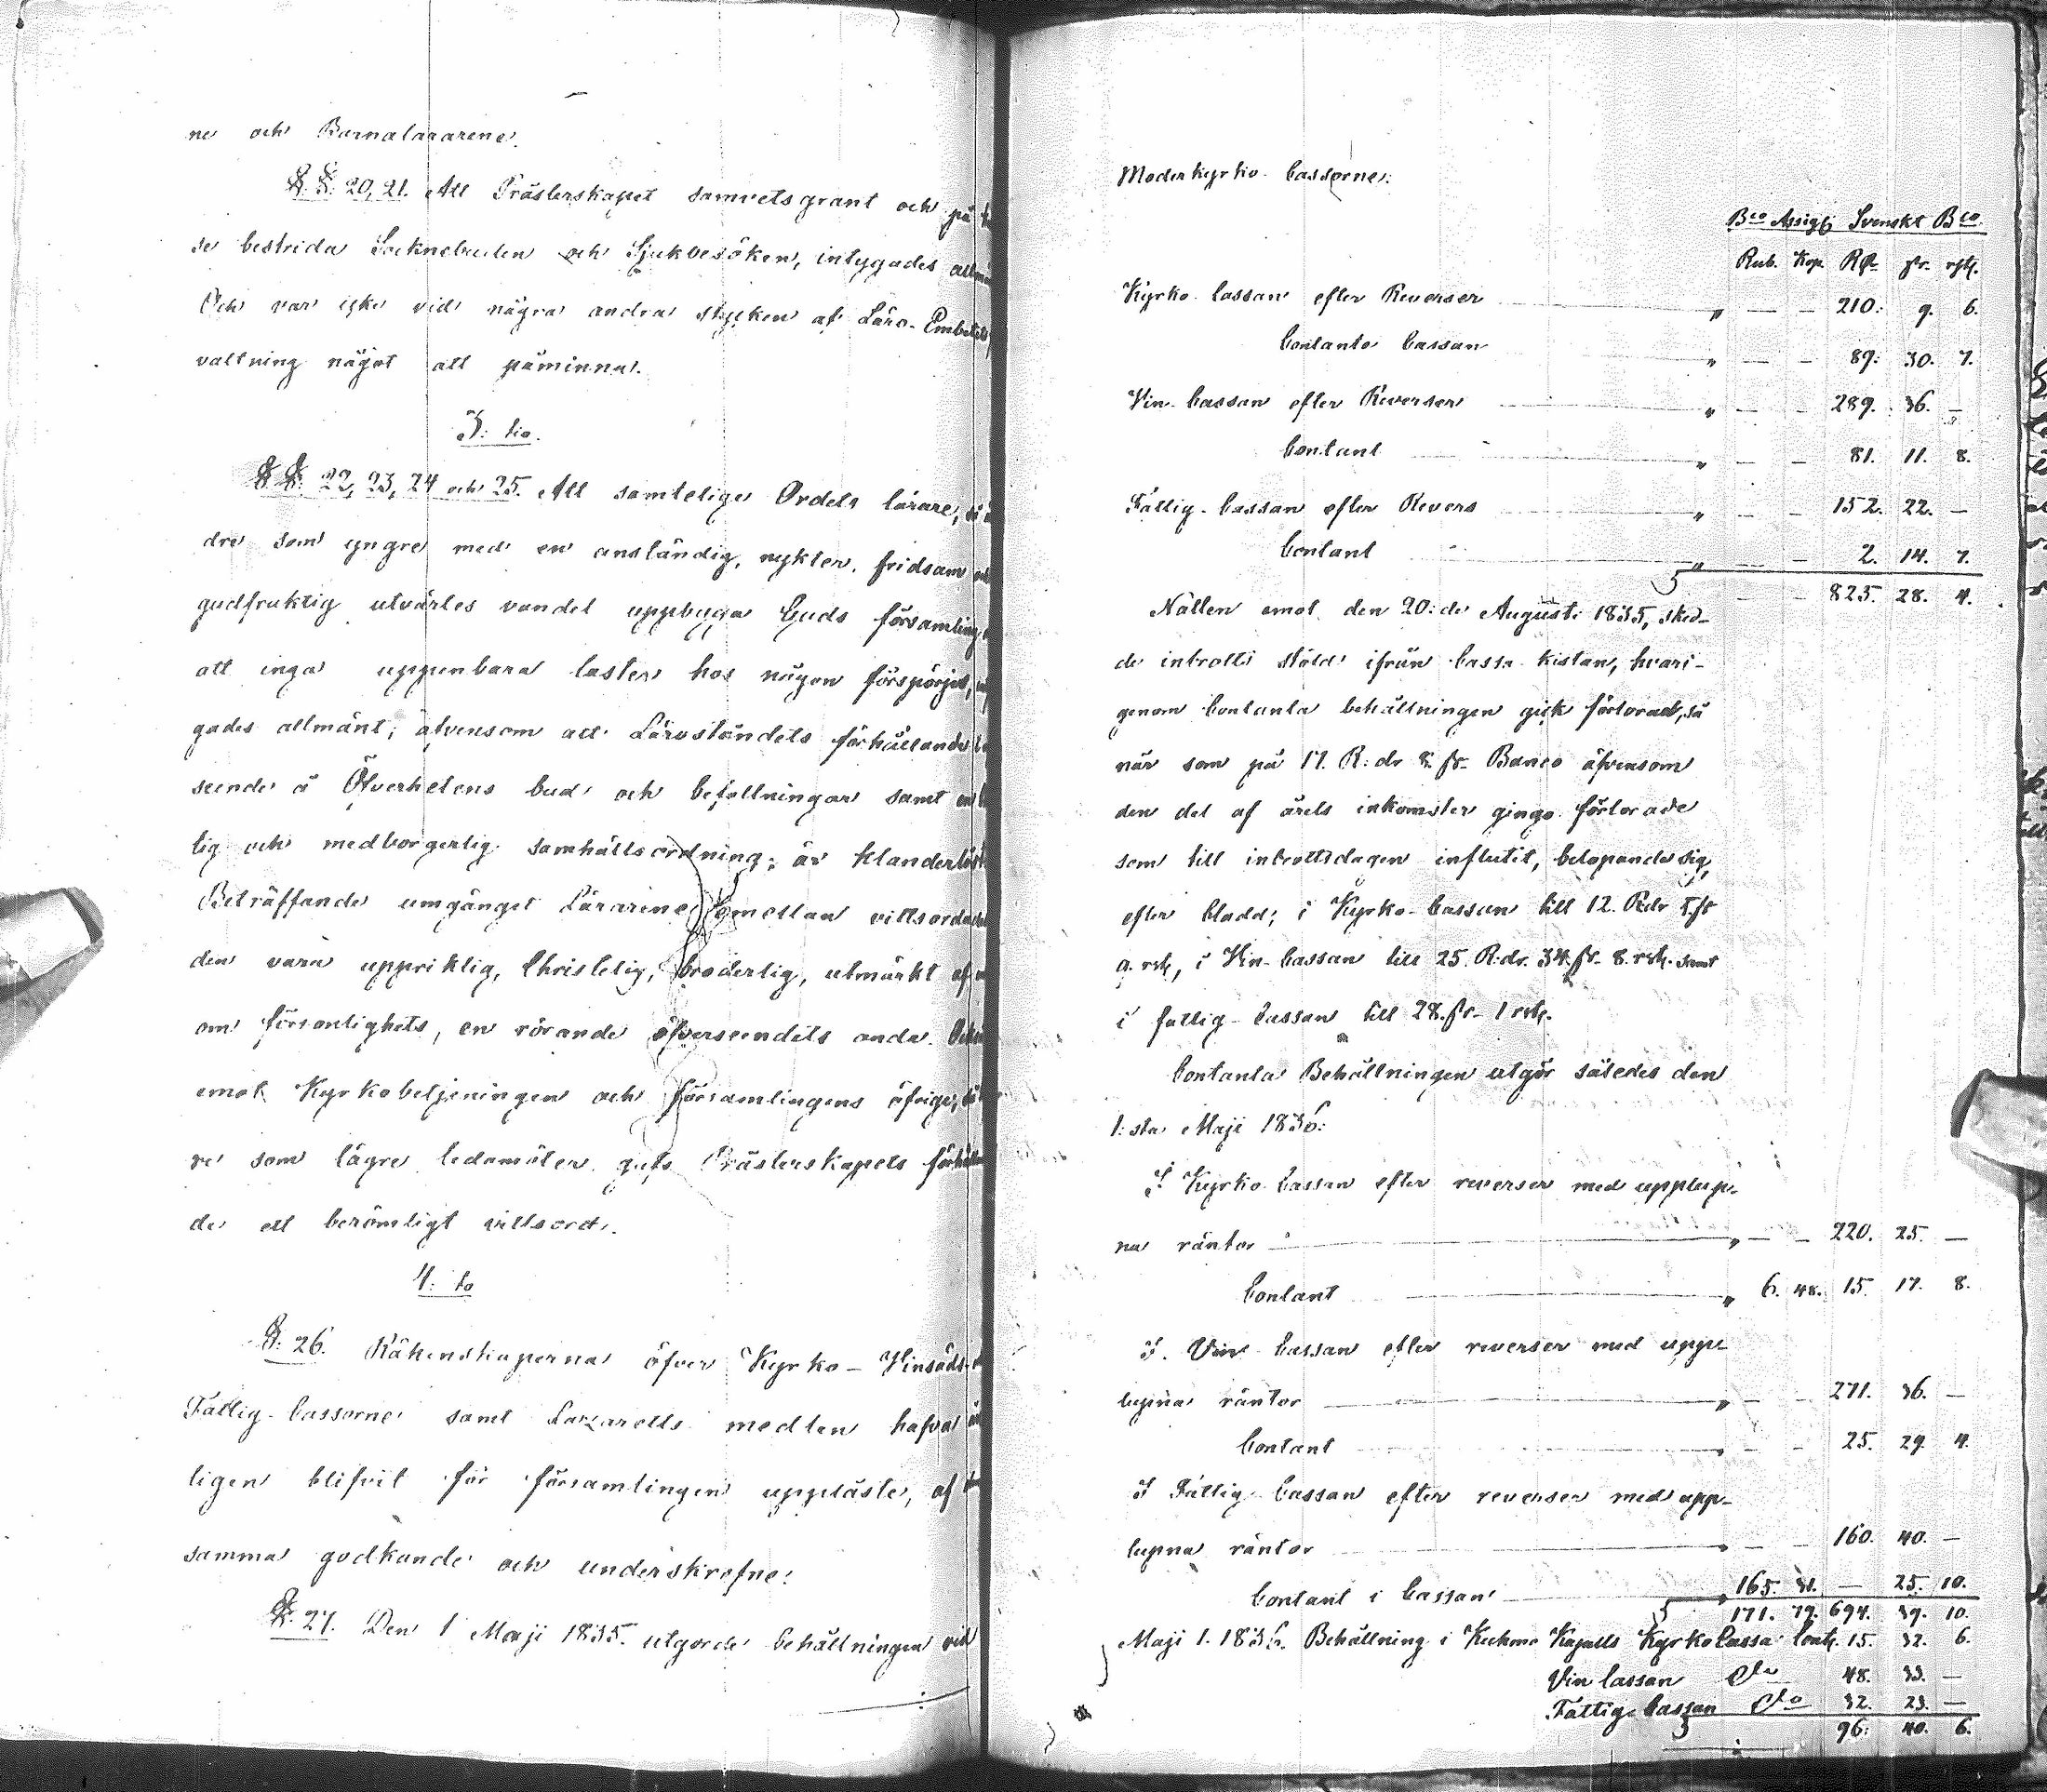 ne och Barnalärarene.
§§. 20, 21. Att Prästerskapet samvetsgrant och på
se bestrida Socknebuden och Sjukbesöken, intygades
Och var icke vid några andra stycken af Läro-Embetets
valtning något att påminna.
3: tio.
§§. 22, 23, 24 och 25. Att samtelige Ordets lärare,
dre som yngre med en anständig, nykter, fridsam
gudfruktig utvärtes vandel uppbyga Guds församling
att inga uppenbara laster hos någon försporjes,
gades allmänt; äfvensom att Läroståndets förhållande
seende å Öfverhetens bud och befallningar samt
lig och medborgerlig samhällsordning, är klanderlöst
Beträffande umgänget Lärarene emellan vittsordades
den vara uppriktig, Christelig, broderlig, utmärkt af
om försonlighets, en rörande öfverseendets anda.
emot Kyrkobetjeningen och församlingens öfrige,
re som lägre ledamöter gafs Prästerskapets förhållan
de ett berömligt vittsord.
4: to
§. 26. Räkenskaperna öfver Kyrko- Vinsäds-
Fattig-Cassorne samt Lazaretts medlen hafva
ligen blifvit för församlingen uppläste, af
samma godkände och underskrefne.
§. 27. Den 1 Maji 1835. utgorde behållningen vid
Moderkyrko-Cassorne:
Bco Assigt Svenskt Bco.
Rub. Kop. Rdr sr. rst.
Kyrko-Cassan efter Reverser " — — 210. 9. 6.
Contanta Cassan " — — 89. 30. 7.
Vin-Cassan efter Reverser " — — 289. 36. —
Contant " — — 81. 11. 8.
Fattig-Cassan efter Revers " — — 152. 22. —
Contant " — — 2. 14. 7.
S — — 825. 28. 4.
Natten emot den 20:de Augusti 1835, sked-
de inbrotts stöld ifrån Cassa kistan, hvari-
genom Contanta behållningen gick förlorad, så
när som på 17. R:dr 8. sr. Banco äfvensom
den del af årets inkomster gingo förlorade
som till inbrottsdagen influtit, belöpande sig,
efter bladd; i Kyrko-Cassan till 12. Rdr sr
9. rst, i Vin-Cassan till 25. R:dr. 34. sr. 8. rst. samt
i fattig-Cassan till 28. sr. 1 rst.
Contanta Behållningen utgör således den
1:sta Maji 1836:
I Kyrko-Cassan efter reverser med upplup-
na räntor " — — 220. 25. —
Contant " 6. 48. 15. 17. 8.
I Vin-Cassan efter reverser med upp-
lupna räntor " — — 271. 36. —
Contant " — — 25. 29. 4.
I Fattig-Cassan efter reverser med upp-
lupna räntor " — — 160. 40. —
Contant i Cassan " 165. 31. — 25. 10.
S 171. 79. 694. 39. 10.
Maji 1. 1836. Behållning i Kapells Kyrko Cassa Cont. 15. 32. 6.
Vin Cassan d:o 48. 33. —
Fattig-Cassan d:o 32. 23. —
S 96. 40. 6.